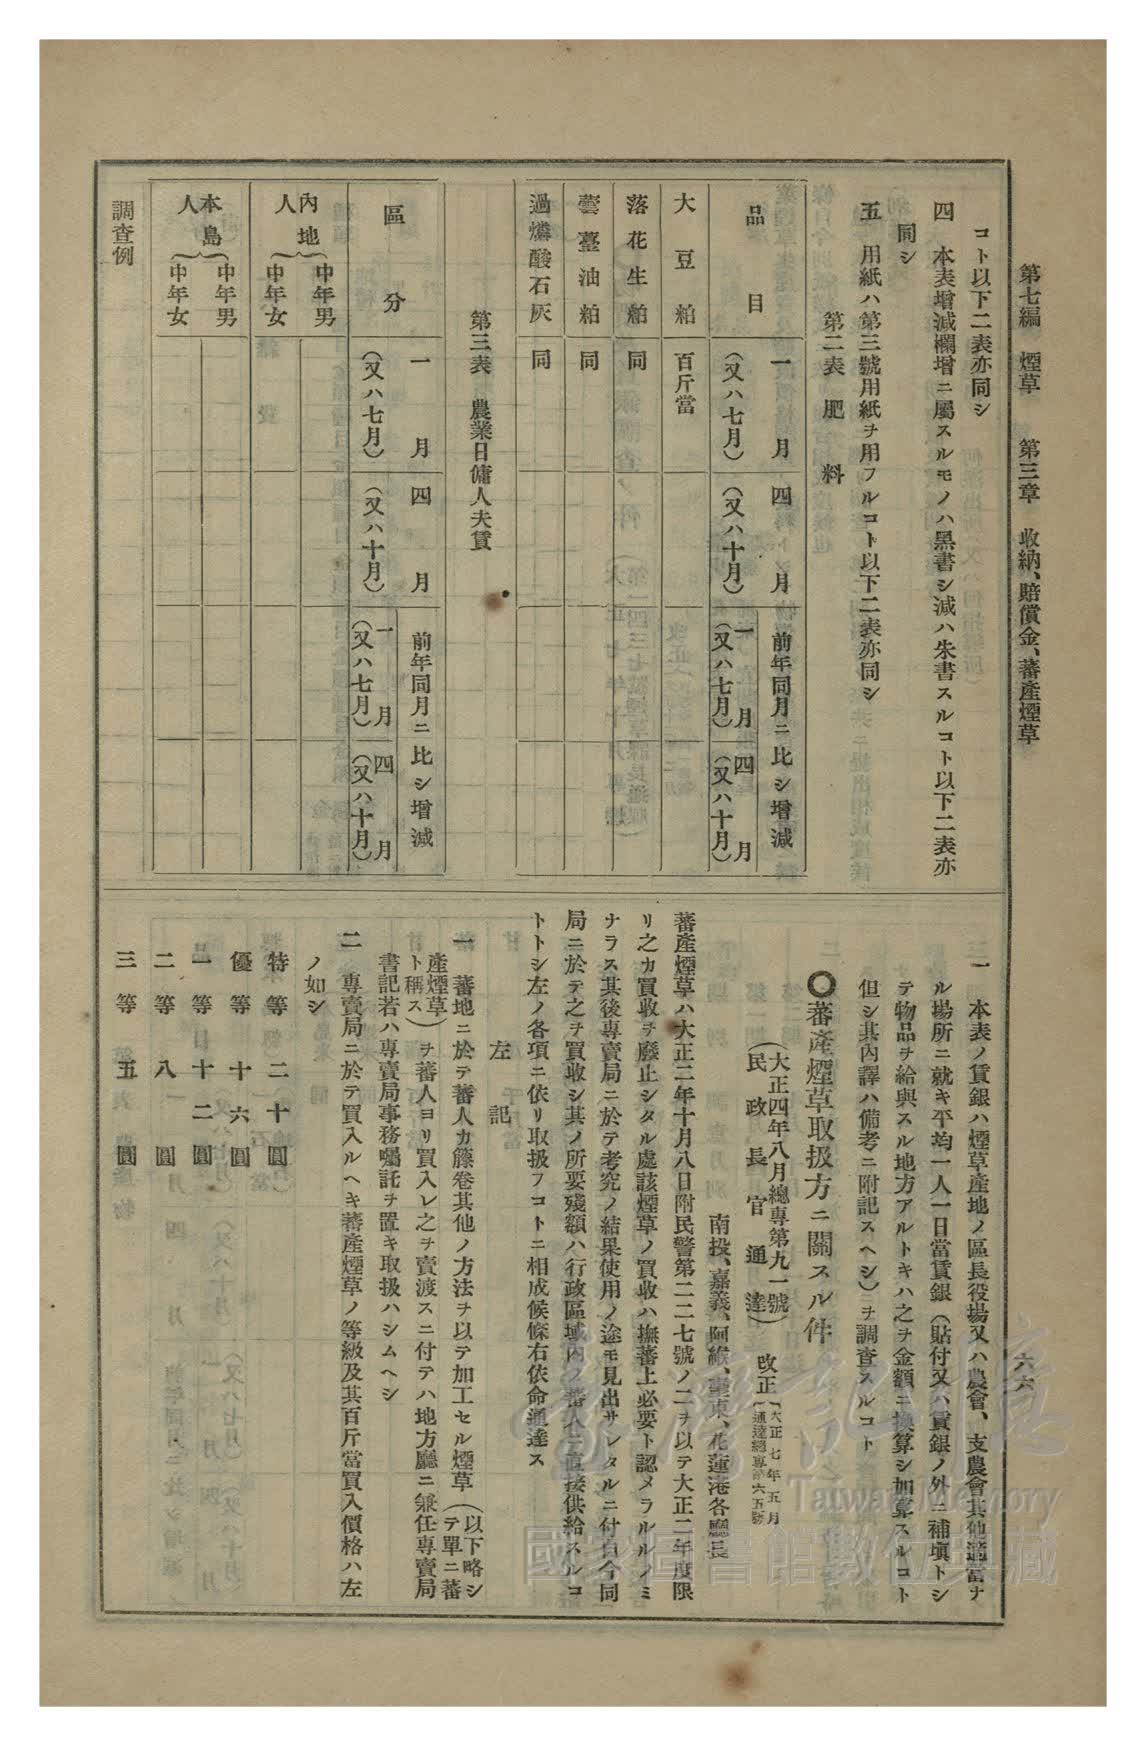 第七編 煙草 第三章 收納、賠償金、蕃產煙草
六六
コト以下二表亦同シ
四 本表增減欄增ニ屬スルモノハ黑書シ減ハ朱書スルコト以下二表亦
同シ
五 用紙ハ第三號用紙ヲ用フルコト以下二表亦同シ
第二表 肥料
品目
一月
(又ハ七月)
四月
(又ハ十月)
前年同月ニ比シ增減
一月
(又ハ七月)
四月
(又ハ十月)
大豆粕 百斤當
落花生粕 同
蕓薹油粕 同
過燐酸石灰 同
第三表 農業日傭人夫賃
區分
一月
(又ハ七月)
四月
(又ハ十月)
前年同月ニ比シ增減
一月
(又ハ七月)
四月
(又ハ十月)
內地人
中年男
中年女
本島人
中年男
中年女
調査例
一 本表ノ賃銀ハ煙草產地ノ區長役場又ハ農會、支農會其他適當ナ
ル場所ニ就キ平均一人一日當賃銀(貼付又ハ賃銀ノ外ニ補塡トシ
テ物品ヲ給與スル地方アルトキハ之ヲ金額ニ換算シ加算スルコト
但シ其內譯ハ備考ニ附記スヘシ)ヲ調査スルコト
◎蕃產煙草取扱方ニ關スル件
(大正四年八月總專第九一號
民政長官通達)
改正(大正七年五月
通達總專第六五號
南投、嘉義、阿緱、臺東、花蓮港各廳長
蕃產煙草ハ大正二年十月八日附民警第二二七號ノ二ヲ以テ大正二年度限
リ之カ買收ヲ廢止シタル處該煙草ノ買收ハ撫蕃上必要ト認メラルルノミ
ナラス其後專賣局ニ於テ考究ノ結果使用ノ途モ見出サレタルニ付自今同
局ニ於テ之ヲ買收シ其ノ所要殘額ハ行政區域內ノ蕃人ニ直接供給スルコ
トトシ左ノ各項ニ依リ取扱フコトニ相成候條右依命通達ス
左記
一 蕃地ニ於テ蕃人カ籐卷其他ノ方法ヲ以テ加工セル煙草(以下略シ
テ單ニ蕃
產煙草
ト稱ス)ヲ蕃人ヨリ買入レ之ヲ賣渡スニ付テハ地方廳ニ兼任專賣局
書記若ハ專賣局事務囑託ヲ置キ取扱ハシムヘシ
二 專賣局ニ於テ買入ルヘキ蕃產煙草ノ等級及其百斤當買入價格ハ左
ノ如シ
特等 二十圓
優等 十六圓
一等 十二圓
二等 八圓
三等 五圓
臺灣記憶
Taiwan Memory
國家圖書館數位典藏